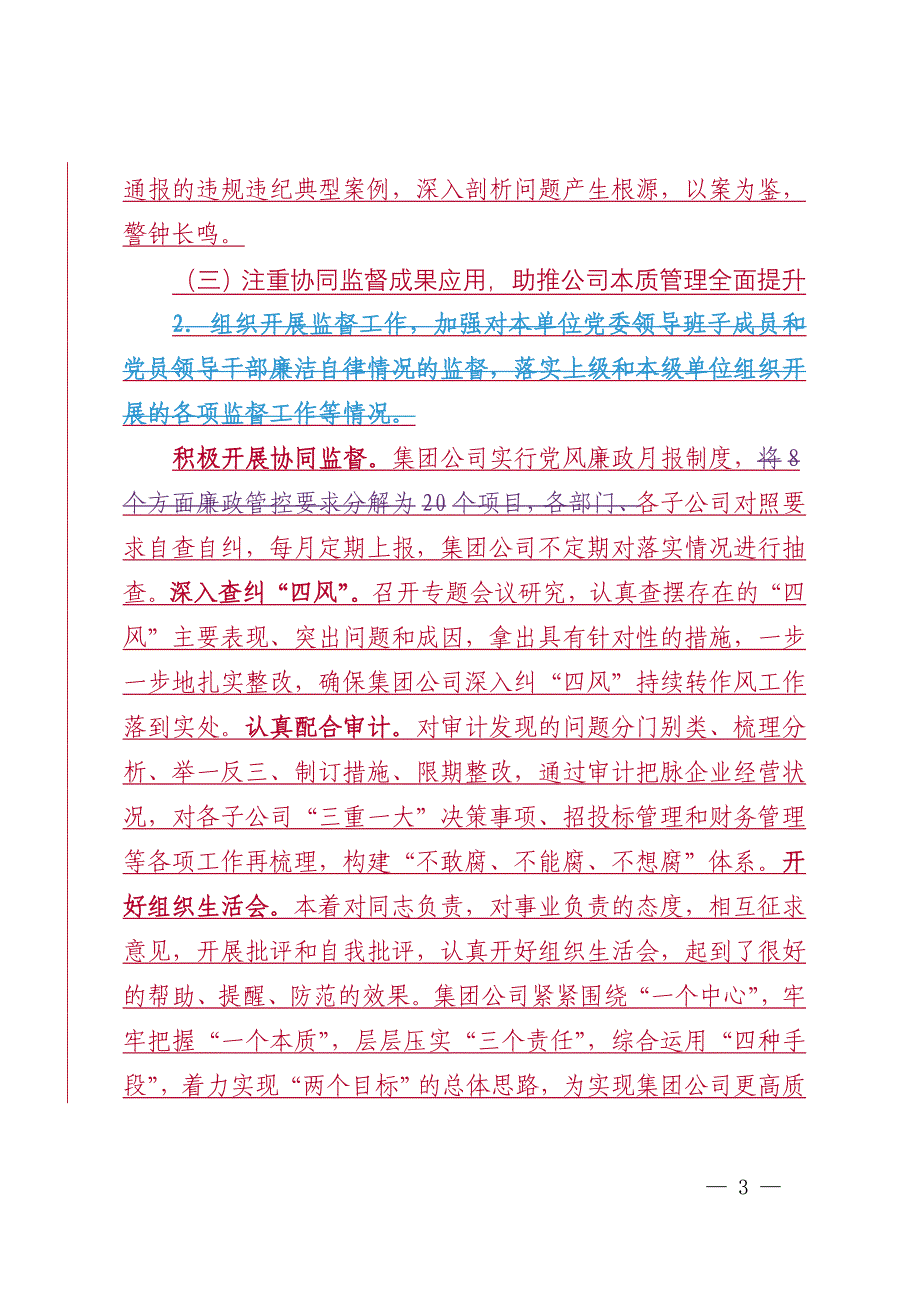 通报的违规违纪典型案例，深入剖析问题产生根源，以案为鉴，
警钟长鸣。
（三）注重协同监督成果应用，助推公司本质管理全面提升
2. 组织开展监督工作，加强对本单位党委领导班子成员和
党员领导干部廉洁自律情况的监督，落实上级和本级单位组织开
展的各项监督工作等情况。
积极开展协同监督。集团公司实行党风廉政月报制度，将 8
个方面廉政管控要求分解为 20 个项目，各部门、各子公司对照要
求自查自纠，每月定期上报，集团公司不定期对落实情况进行抽
查。深入查纠“四风”。召开专题会议研究，认真查摆存在的“四
风”主要表现、突出问题和成因，拿出具有针对性的措施，一步
一步地扎实整改，确保集团公司深入纠“四风”持续转作风工作
落到实处。认真配合审计。对审计发现的问题分门别类、梳理分
析、举一反三、制订措施、限期整改，通过审计把脉企业经营状
况，对各子公司“三重一大”决策事项、招投标管理和财务管理
等各项工作再梳理，构建“不敢腐、不能腐、不想腐”体系。开
好组织生活会。本着对同志负责，对事业负责的态度，相互征求
意见，开展批评和自我批评，认真开好组织生活会，起到了很好
的帮助、提醒、防范的效果。集团公司紧紧围绕“一个中心”，牢
牢把握“一个本质”，层层压实“三个责任”，综合运用“四种手
段”，着力实现“两个目标”的总体思路，为实现集团公司更高质
— 3 —